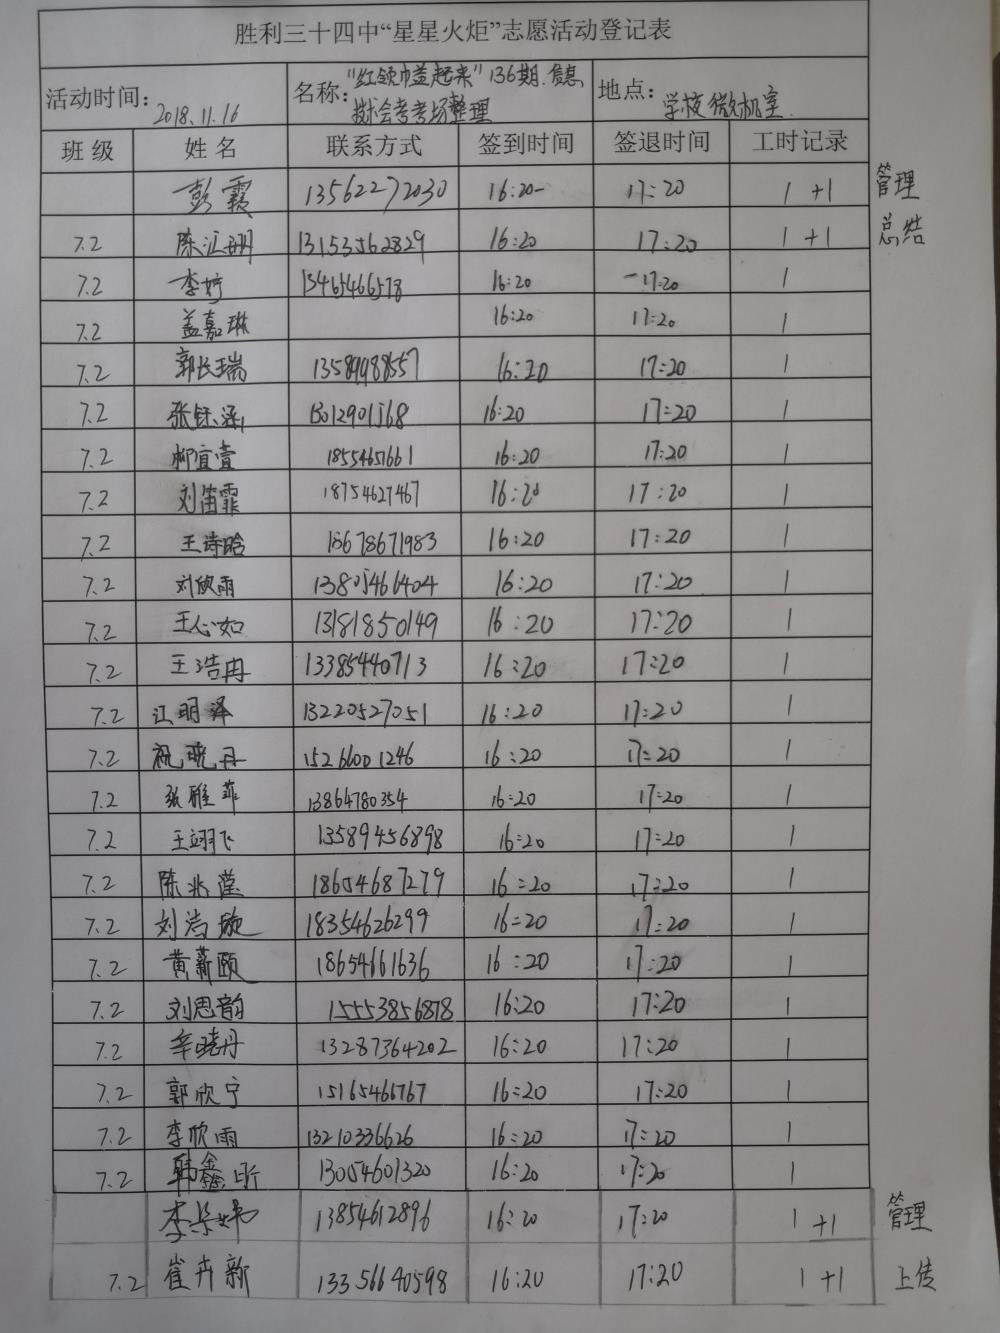 胜利三十四中“星星火炬”志愿活动登记表
活动时间: 2018.11.16 名称: “红领巾益起来”136期.信息技术会考考场整理 地点: 学校微机室
班级 姓名 联系方式 签到时间 签退时间 工时记录
彭霞 13562272030 16:20 17:20 1 +1 管理
7.2 陈汇册 13153562829 16:20 17:20 1 +1 总结
7.2 李婷 15465466578 16:20 17:20 1
7.2 盖嘉琳 16:20 17:20 1
7.2 郭长瑞 13589988557 16:20 17:20 1
7.2 张钰涵 16:20 17:20 1
7.2 柳宜萱 18554657661 16:20 17:20 1
7.2 刘笛霏 18754627467 16:20 17:20 1
7.2 王诗晗 18678671983 16:20 17:20 1
7.2 刘欣雨 13805466404 16:20 17:20 1
7.2 王心如 13181850149 16:20 17:20 1
7.2 王浩冉 13385440713 16:20 17:20 1
7.2 江明泽 13220527051 16:20 17:20 1
7.2 祝晓丹 15266001246 16:20 17:20 1
7.2 张雅菲 13864780354 16:20 17:20 1
7.2 王翊飞 13589456898 16:20 17:20 1
7.2 陈兆滢 18654687279 16:20 17:20 1
7.2 刘洁璇 18354626299 16:20 17:20 1
7.2 黄薪颐 18654661636 16:20 17:20 1
7.2 刘思韵 15553856878 16:20 17:20 1
7.2 辛晓丹 13287364202 16:20 17:20 1
7.2 郭欣宁 15165466767 16:20 17:20 1
7.2 李欣雨 13210336626 16:20 17:20 1
7.2 韩鑫昕 13054601320 16:20 17:20 1
13854612896 16:20 17:20 1 +1 管理
7.2 崔卉新 13356640598 16:20 17:20 1 +1 上传